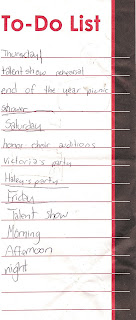 To-Do List
Thursday
talent show rehearsal
end of the year picnic
shower
Saturday
honor choir auditions
Victoria's party
Haley's party
Friday
Talent show
Morning
Afternoon
night